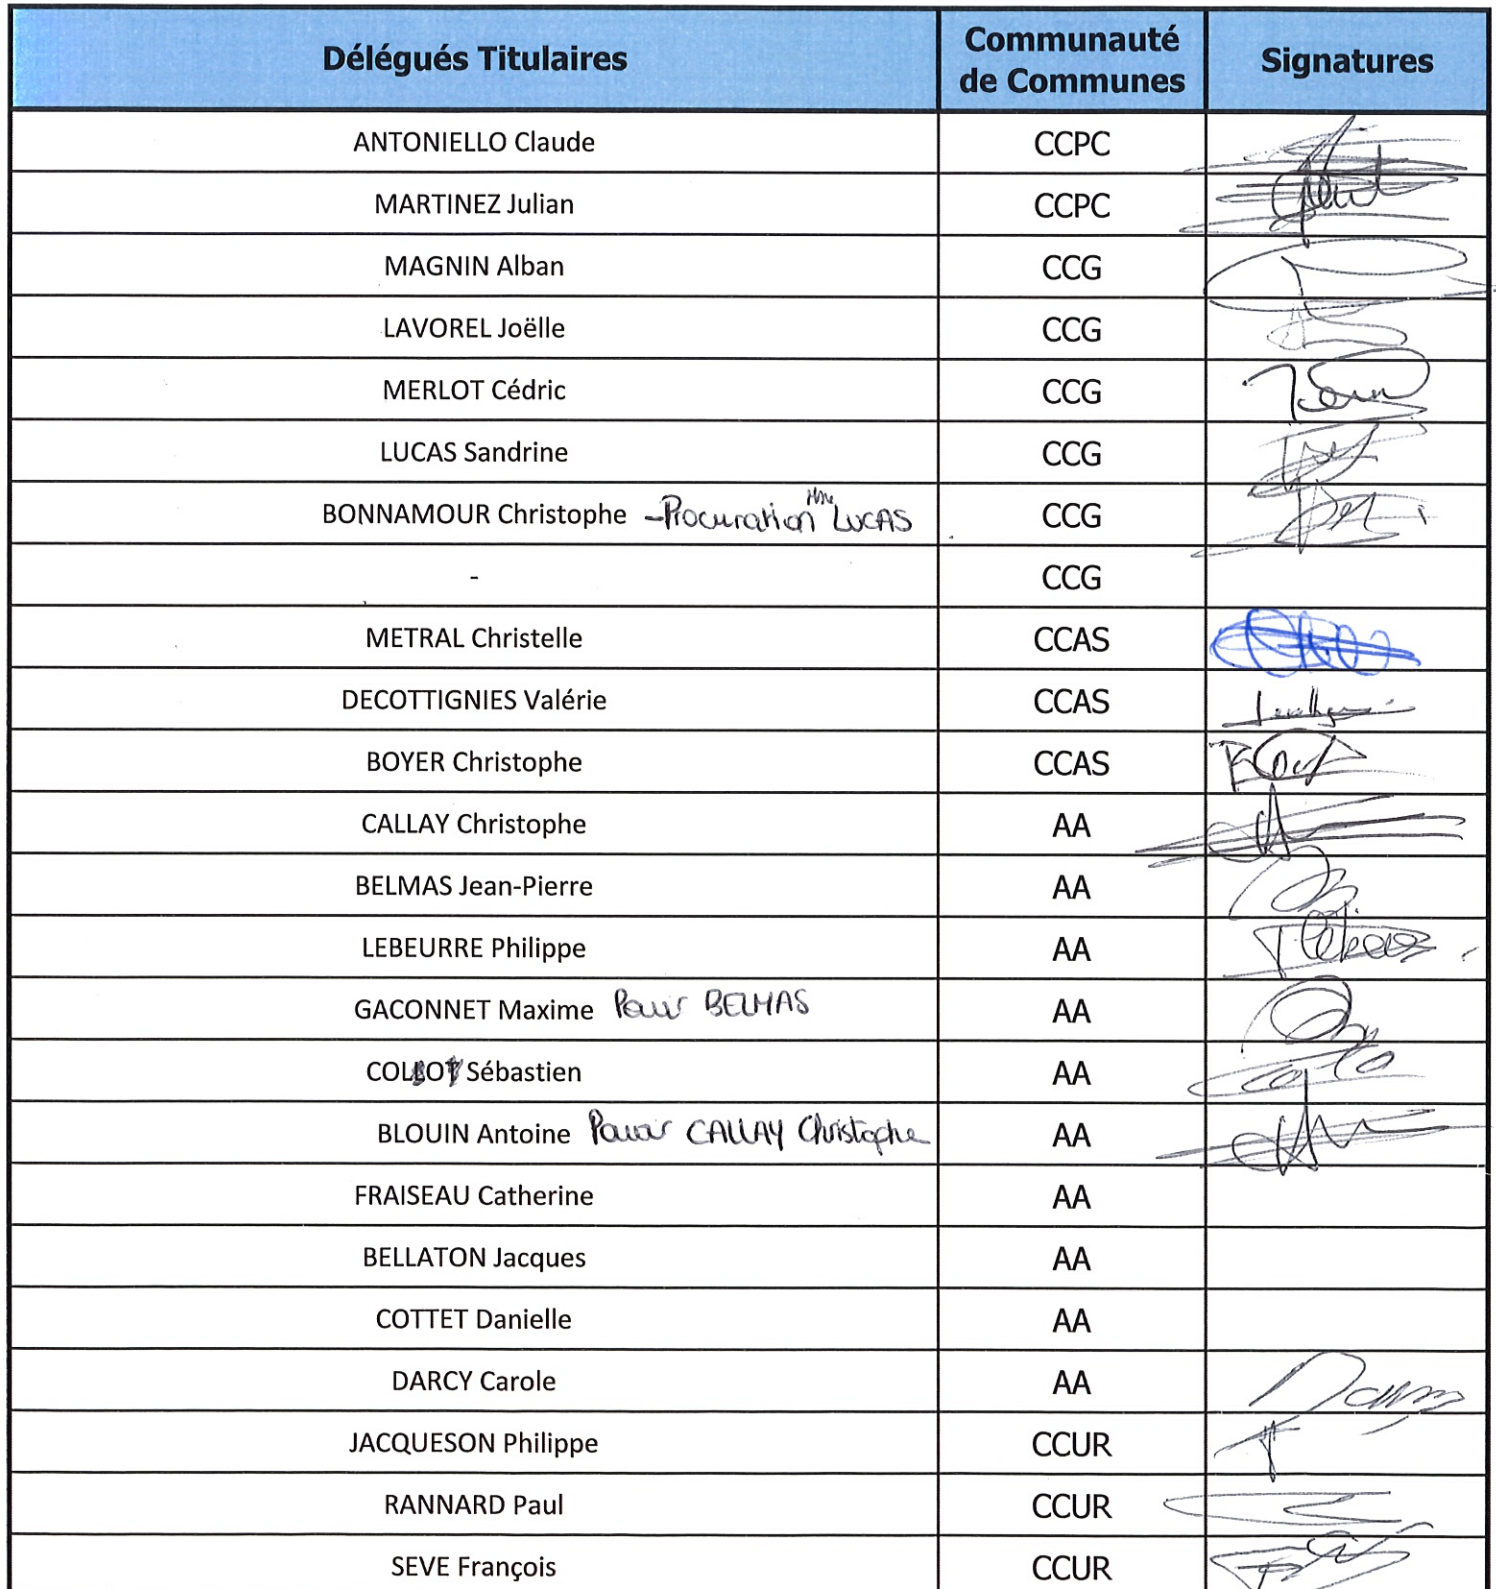 Délégués Titulaires Communauté de Communes Signatures
ANTONIELLO Claude CCPC
MARTINEZ Julian CCPC
MAGNIN Alban CCG
LAVOREL Joëlle CCG
MERLOT Cédric CCG
LUCAS Sandrine CCG
BONNAMOUR Christophe - Procuration Mme LUCAS CCG
- CCG
METRAL Christelle CCAS
DECOTTIGNIES Valérie CCAS
BOYER Christophe CCAS
CALLAY Christophe AA
BELMAS Jean-Pierre AA
LEBEURRE Philippe AA
GACONNET Maxime Pouvoir BELMAS AA
Sébastien AA
BLOUIN Antoine Pouvoir CALLAY Christophe AA
FRAISEAU Catherine AA
BELLATON Jacques AA
COTTET Danielle AA
DARCY Carole AA
JACQUESON Philippe CCUR
RANNARD Paul CCUR
SEVE François CCUR